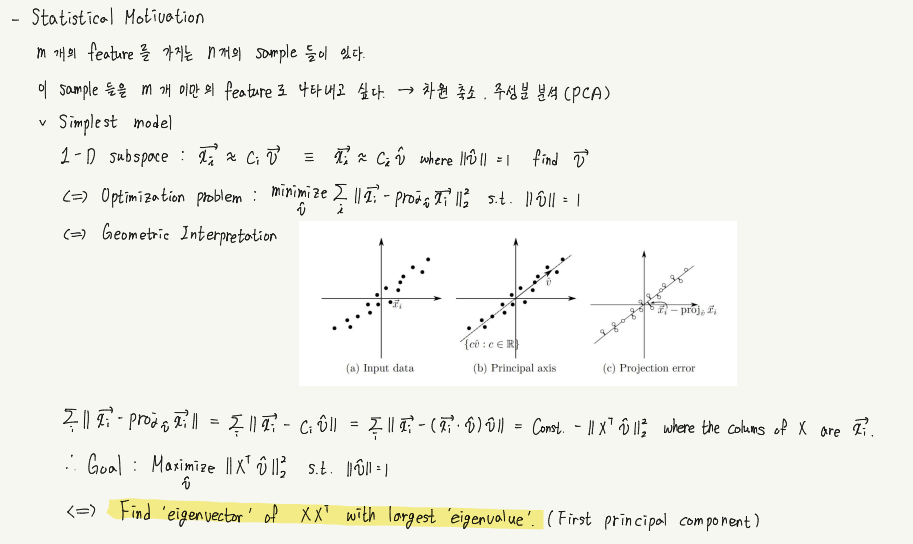 - Statistical Motivation
m 개의 feature를 가지는 n개의 sample 들이 있다.
이 sample 들을 m 개 미만의 feature로 나타내고 싶다. → 차원 축소. 주성분 분석(PCA)
v Simplest model
1-D subspace : x⃗ᵢ ≈ cᵢ v⃗ ≡ x⃗ᵢ ≈ cᵢ v̂ where ||v̂|| = 1 find v⃗
<=> Optimization problem : minimize_v̂ ∑ᵢ || x⃗ᵢ - proj_v̂ x⃗ᵢ ||₂² s.t. ||v̂|| = 1
<=> Geometric Interpretation
x⃗ᵢ
v̂
{cv̂ : c ∈ ℝ}
x⃗ᵢ − proj_v̂ x⃗ᵢ
(a) Input data
(b) Principal axis
(c) Projection error
∑ᵢ || x⃗ᵢ - proj_v̂ x⃗ᵢ || = ∑ᵢ || x⃗ᵢ - cᵢ v̂ || = ∑ᵢ || x⃗ᵢ - (x⃗ᵢ · v̂) v̂ || = Const. - || Xᵀ v̂ ||₂² where the colums of X are x⃗ᵢ.
∴ Goal : Maximize_v̂ || Xᵀ v̂ ||₂² s.t. ||v̂|| = 1
<=> Find 'eigenvector' of XXᵀ with largest 'eigenvalue'. (First principal component)